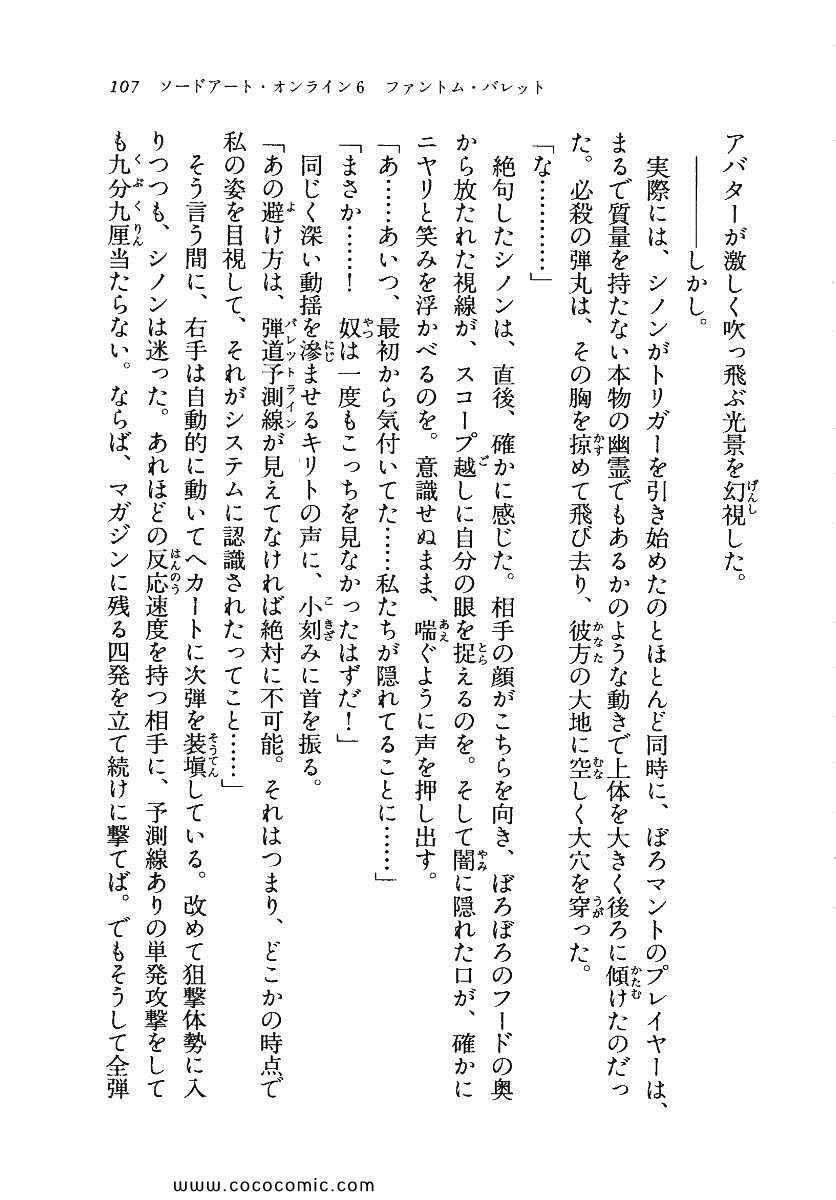 107 ソードアート・オンライン6 ファントム・バレット
アバターが激しく吹っ飛ぶ光景を幻視した。
――しかし。
実際には、シノンがトリガーを引き始めたのとほとんど同時に、ぼろマントのプレイヤーは、
まるで質量を持たない本物の幽霊でもあるかのような動きで上体を大きく後ろに傾けたのだっ
た。必殺の弾丸は、その胸を掠めて飛び去り、彼方の大地に空しく大穴を穿った。
「な…………」
絶句したシノンは、直後、確かに感じた。相手の顔がこちらを向き、ぼろぼろのフードの奥
から放たれた視線が、スコープ越しに自分の眼を捉えるのを。そして闇に隠れた口が、確かに
ニヤリと笑みを浮かべるのを。意識せぬまま、喘ぐように声を押し出す。
「あ……あいつ、最初から気付いてた……私たちが隠れてることに……」
「まさか……！　奴は一度もこっちを見なかったはずだ！」
同じく深い動揺を滲ませるキリトの声に、小刻みに首を振る。
「あの避け方は、弾道予測線が見えてなければ絶対に不可能。それはつまり、どこかの時点で
私の姿を目視して、それがシステムに認識されたってこと……」
そう言う間に、右手は自動的に動いてヘカートに次弾を装塡している。改めて狙撃体勢に入
りつつも、シノンは迷った。あれほどの反応速度を持つ相手に、予測線ありの単発攻撃をして
も九分九厘当たらない。ならば、マガジンに残る四発を立て続けに撃てば。でもそうして全弾
www.cococomic.com